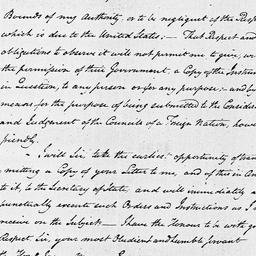 Bounds of my Authority, or to be negligent of the Respe
which is due to the United States;— That Respect and
obligations to observe it will not permit me to give, wi
the permission of their Government, a Copy of the Instrum
in Question, to any person or for any purpose;— and by
means for the purpose of being submitted to the Conside
and Judgement of the Councils of a Foreign Nation, howe
friendly.
I will Sir, take the earliest opportunity of tran
mitting a Copy of your Letter to me, and of this in An
to it, to the Secretary of State, and will immediately a
punctually execute such Orders and Instructions as I
receive on the Subject.— I have the Honour to be with g
Respect Sir, your most Obedient and humble Servant